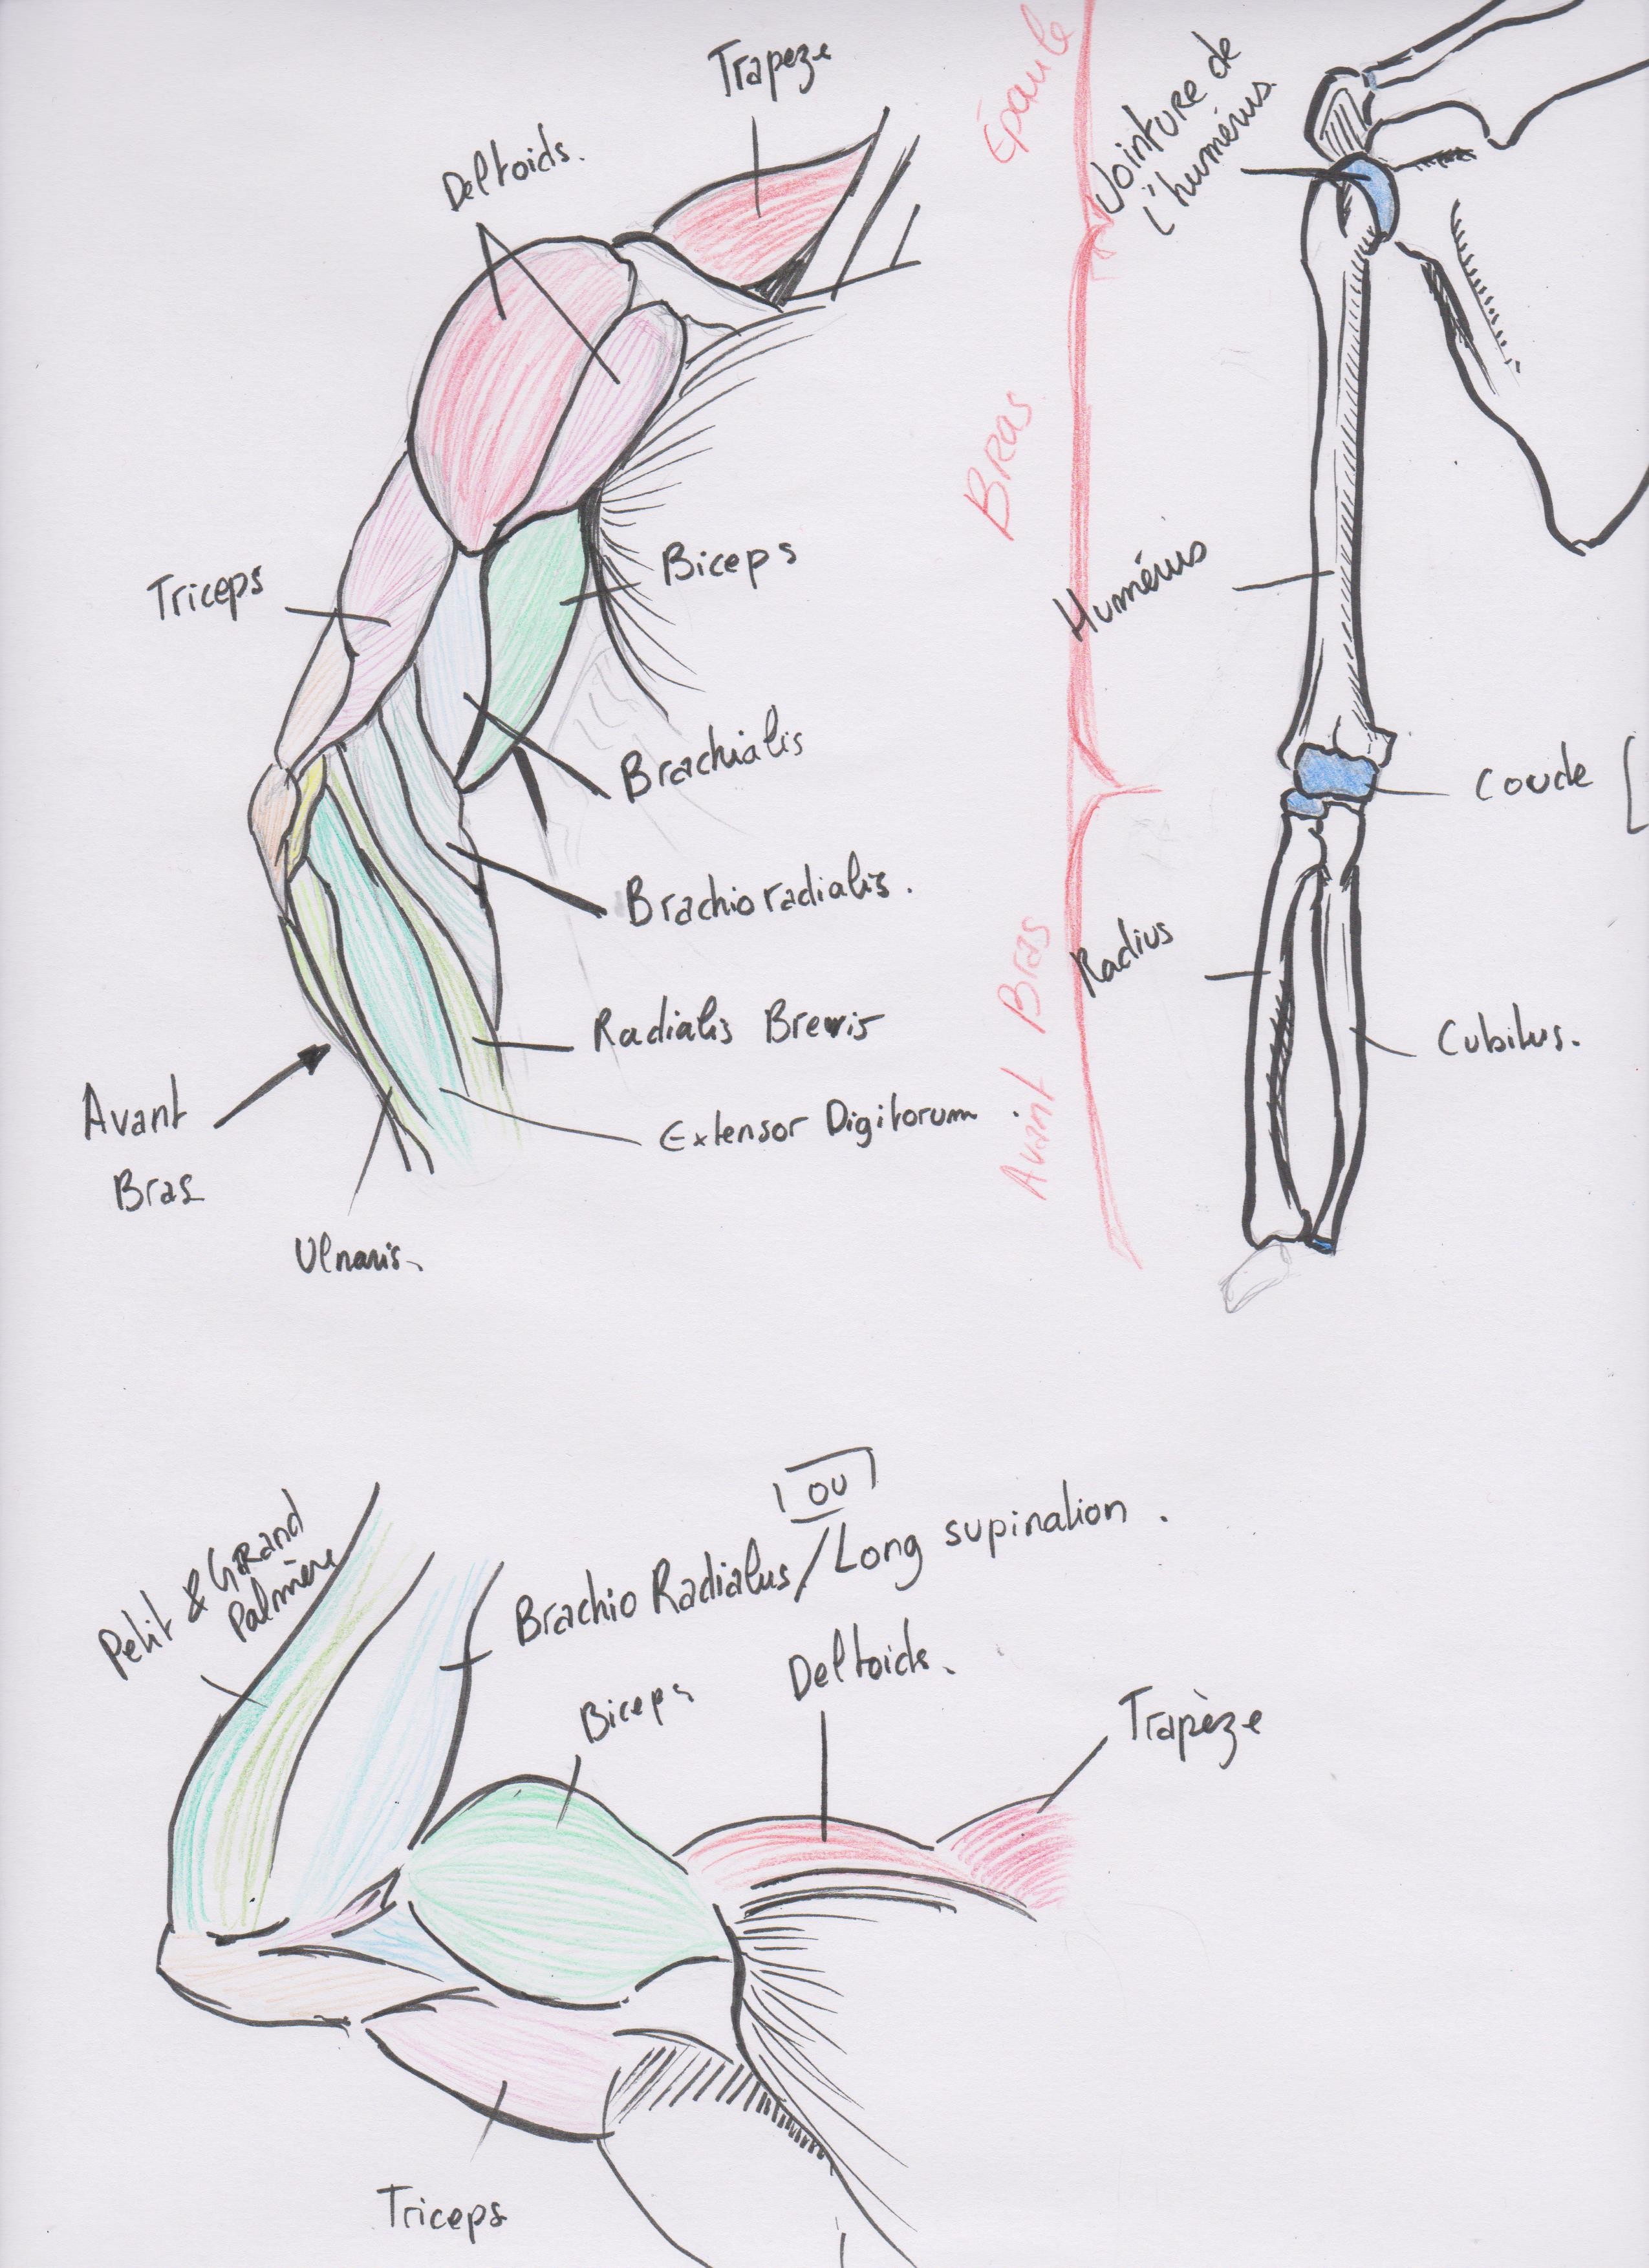 Trapeze
Deltoids.
Triceps
Biceps
Brachialis
Brachioradialis.
Radialis Brevis
Extensor Digitorum
Avant
Bras
Ulnaris.
Épaule
Bras
Avant Bras
Jointure de
l'humérus.
Humérus
Coude [
Radius
Cubitus.
Petit & Grand
Palmère
OU
Brachio Radialus/Long supination.
Biceps
Deltoids.
Trapèze
Triceps